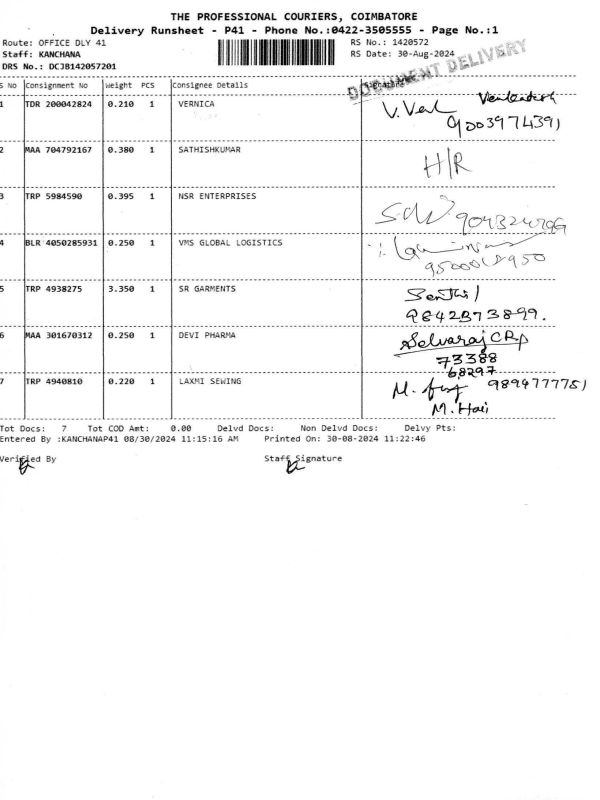 THE PROFESSIONAL COURIERS, COIMBATORE
Delivery Runsheet - P41 - Phone No.:0422-3505555 - Page No.:1
Route: OFFICE DLY 41
Staff: KANCHANA
DRS No.: DCJB142057201
RS No.: 1420572
RS Date: 30-Aug-2024
DOCUMENT DELIVERY
S No Consignment No Weight PCS Consignee Details
1 TDR 200042824 0.210 1 VERNICA
Venkatesh
9003974391
2 MAA 704792167 0.380 1 SATHISHKUMAR
H/R
3 TRP 5984590 0.395 1 NSR ENTERPRISES
4 BLR 4050285931 0.250 1 VMS GLOBAL LOGISTICS
5 TRP 4938275 3.350 1 SR GARMENTS
Senthil
9842373899.
6 MAA 301670312 0.250 1 DEVI PHARMA
Selvaraj
73388
68297
7 TRP 4940810 0.220 1 LAXMI SEWING
9894777781
M. Hari
Tot Docs: 7 Tot COD Amt: 0.00 Delvd Docs: Non Delvd Docs: Delvy Pts:
Entered By :KANCHANAP41 08/30/2024 11:15:16 AM Printed On: 30-08-2024 11:22:46
Verified By Staff Signature